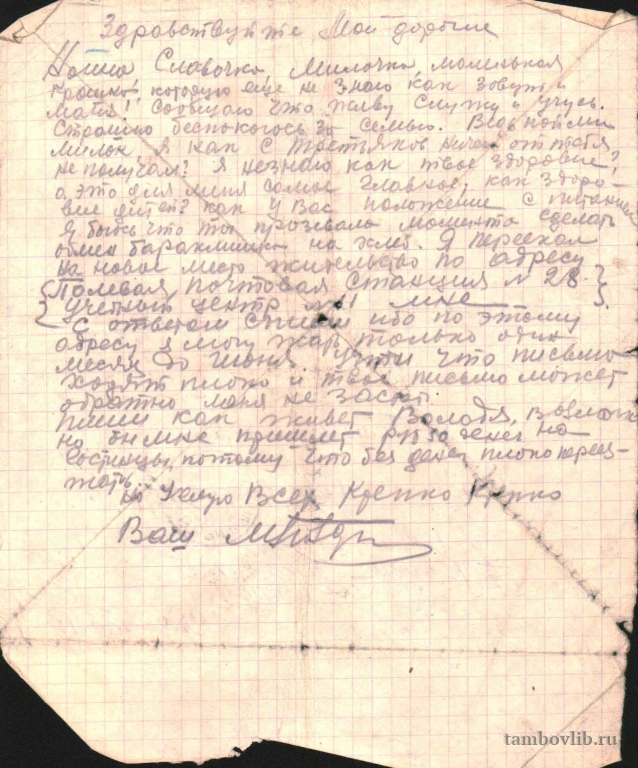 Здравствуйте Мои дорогие
Нонна Славочка, Милочка, маленькая
крошка, которую еще не знаю как зовут и
Матя! Сообщаю что живу служу и учусь.
Страшно беспокоюсь за семью. Ведь пойми
милок, я как с Третьяков ничего от тебя
не получал? Я незнаю как твое здоровие?,
а это для меня самое главное, как здоро-
вие детей? как у Вас положение с питанием
Я боюсь что ты прозевала момента сделать
обмен барахлишка на хлеб. Я переехал
на новое место жительство по адресу
{Полевая почтовая станция № 28.}
{учетный центр №1 мне}
С ответом спеши ибо по этому
адресу я могу ждать только один
месяц до июня. Учти что письмо
ходят плохо и твое письмо может
обратно меня не застат.
Пиши как живет Володя,
но бы мне пришлет руб 50 денег на
гостинцы, потому что без денег плохо переез-
жать.
Ну Целую Всех Крепко Крепко
Ваш
tambovlib.ru